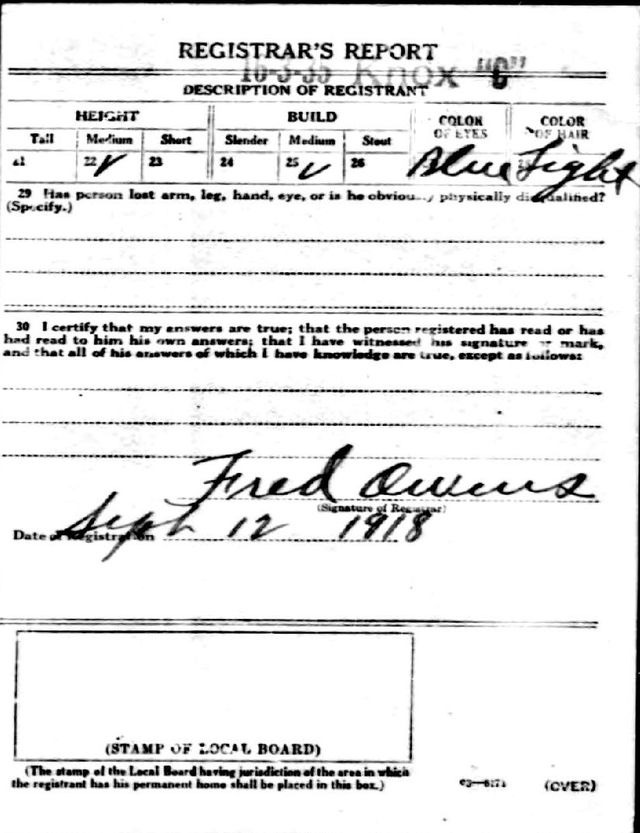 REGISTRAR'S REPORT
16-3-35 Knox "C"
DESCRIPTION OF REGISTRANT
HEIGHT BUILD COLOR OF EYES COLOR OF HAIR
Tall Medium Short Slender Medium Stout
21 22 ✓ 23 24 25 ✓ 26 Blue Light
29 Has person lost arm, leg, hand, eye, or is he obviously physically disqualified?
(Specify.)
30 I certify that my answers are true; that the person registered has read or has
had read to him his own answers; that I have witnessed his signature or mark,
and that all of his answers of which I have knowledge are true, except as follows:
Fred Owens
(Signature of Registrar)
Date of Registration Sept 12 1918
(STAMP OF LOCAL BOARD)
(The stamp of the Local Board having jurisdiction of the area in which
the registrant has his permanent home shall be placed in this box.)
03—6171 (OVER)